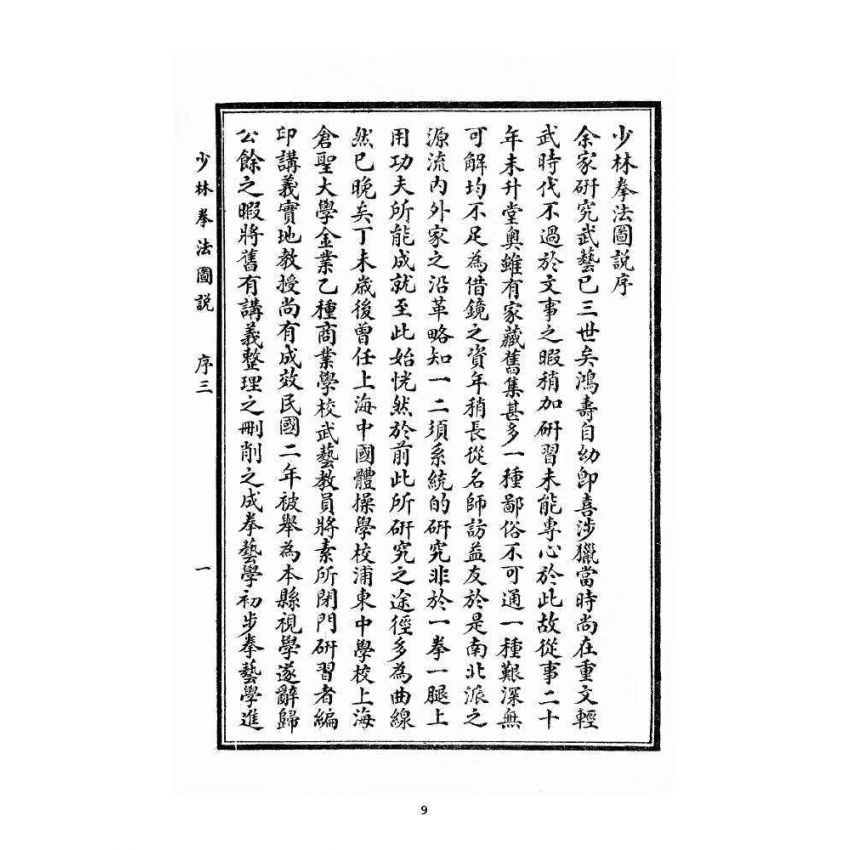 少林拳法圖說序
余家研究武藝已三世矣鴻壽自幼卽喜涉獵當時尚在重文輕
武時代不過於文事之暇稍加研習未能專心於此故從事二十
年未升堂奧雖有家藏舊集甚多一種鄙俗不可通一種艱深無
可解均不足為借鏡之資年稍長從名師訪益友於是南北派之
源流內外家之沿革略知一二須系統的研究非於一拳一腿上
用功夫所能成就至此始恍然於前此所研究之途徑多為曲線
然已晚矣丁未歲後曾任上海中國體操學校浦東中學校上海
倉聖大學金業乙種商業學校武藝教員將素所閉門研習者編
印講義實地教授尚有成效民國二年被舉為本縣視學遂辭歸
公餘之暇將舊有講義整理之刪削之成拳藝學初步拳藝學進
少林拳法圖說 序三 一
9